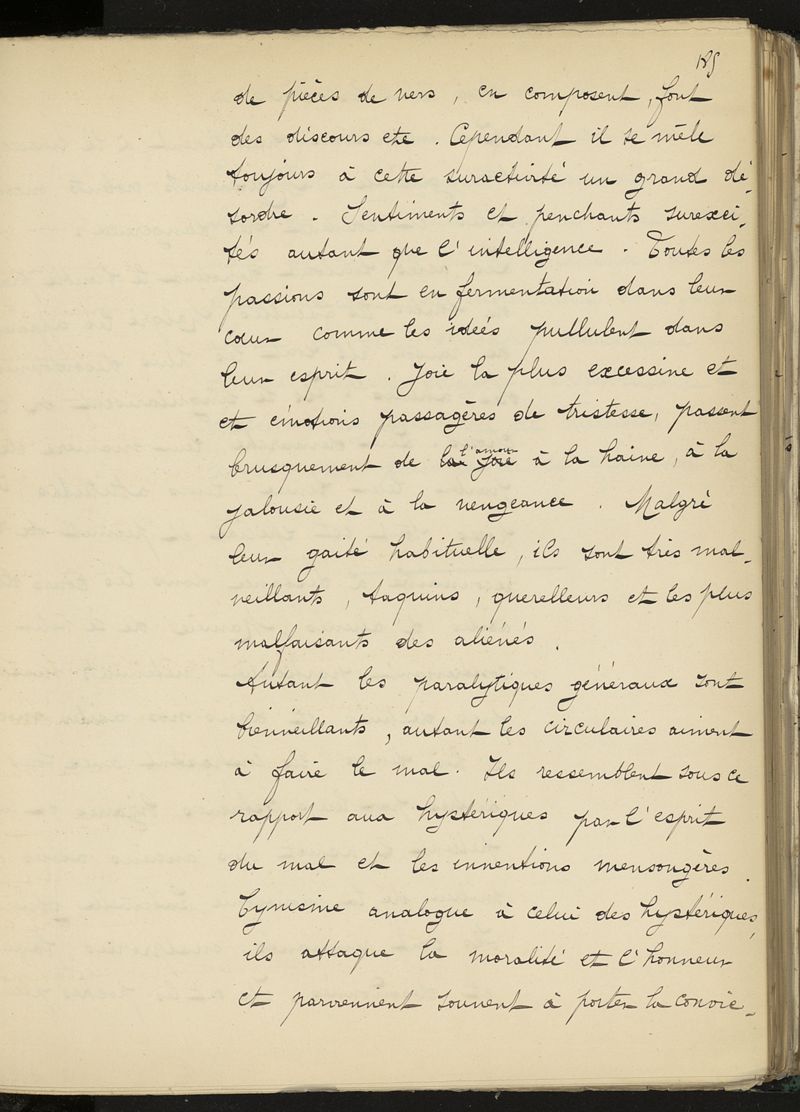 185
de pièces de vers, en composent, font
des discours etc. Cependant il se mêle
toujours à cette suractivité un grand dé-
sordre. Sentiments et penchants surexci-
tés autant que l'intelligence. Toutes les
passions sont en fermentation dans leur
cœur comme les idées pullulent dans
leur esprit. Joie la plus excessive et
et émotions passagères de tristesse, passent
brusquement de la joie l'amour à la haine, à la
jalousie et à la vengeance. Malgré
leur gaité habituelle, ils sont très mal-
veillants, taquins, querelleurs et les plus
malfaisants des aliénés.
Autant les paralytiques généraux sont
bienveillants, autant les circulaires aiment
à faire le mal. Ils ressemblent sous ce
rapport aux hystériques par l'esprit
du mal et les inventions mensongères.
Cynisme analogue à celui des hystériques,
ils attaque la moralité et l'honneur
et parviennent souvent à porter la convic-